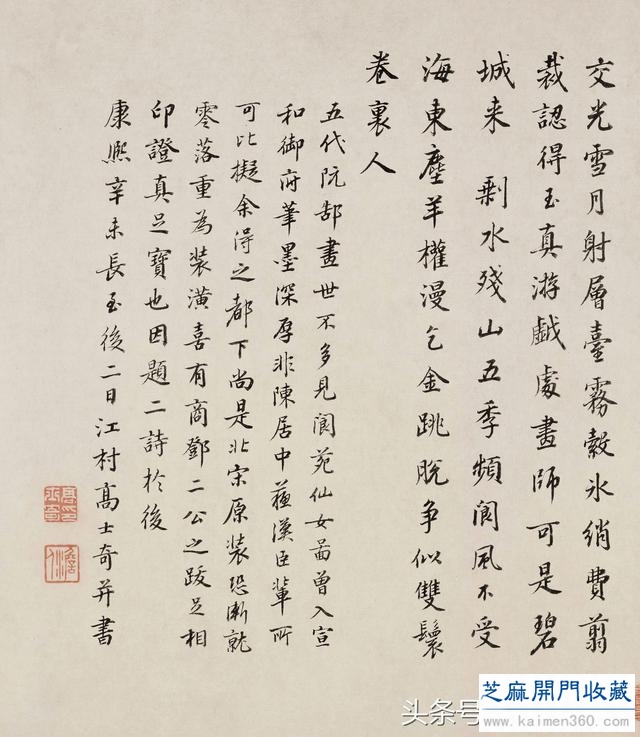 交光雪月射層臺霧縠氷綃費翦
裁認得玉真游戲處畫師可是碧
城来　剩水殘山五季頻閬風不受
海東塵羊權漫乞金跳脫争似雙鬟
卷裏人
五代阮郜畫世不多見閬苑仙女啚曾入宣
和御府筆墨深厚非陳居中蘓漢臣輩所
可比擬余得之都下尚是北宋原装恐漸就
零落重為装潢喜有商鄧二公之跋足相
印證真足寶也因題二詩於後
康熙辛未長至後二日江村高士奇并書
头条号
芝麻開門收藏
www.kaimen360.com